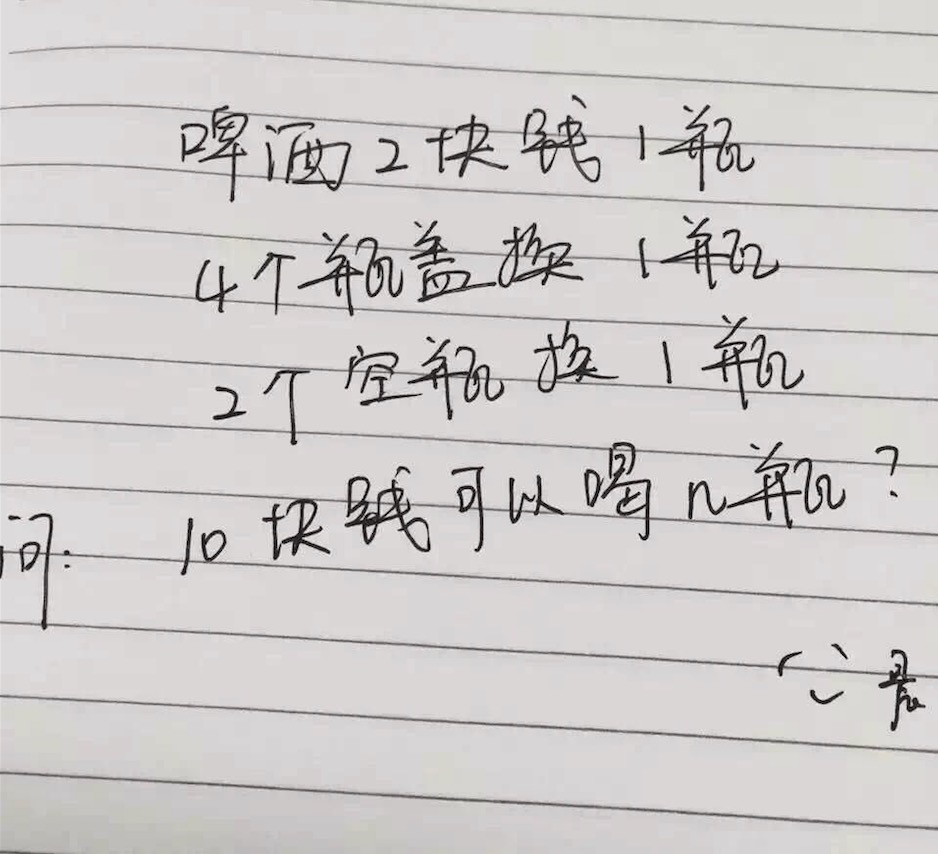 啤酒2块钱1瓶
4个瓶盖换1瓶
2个空瓶换1瓶
问: 10块钱可以喝n瓶?